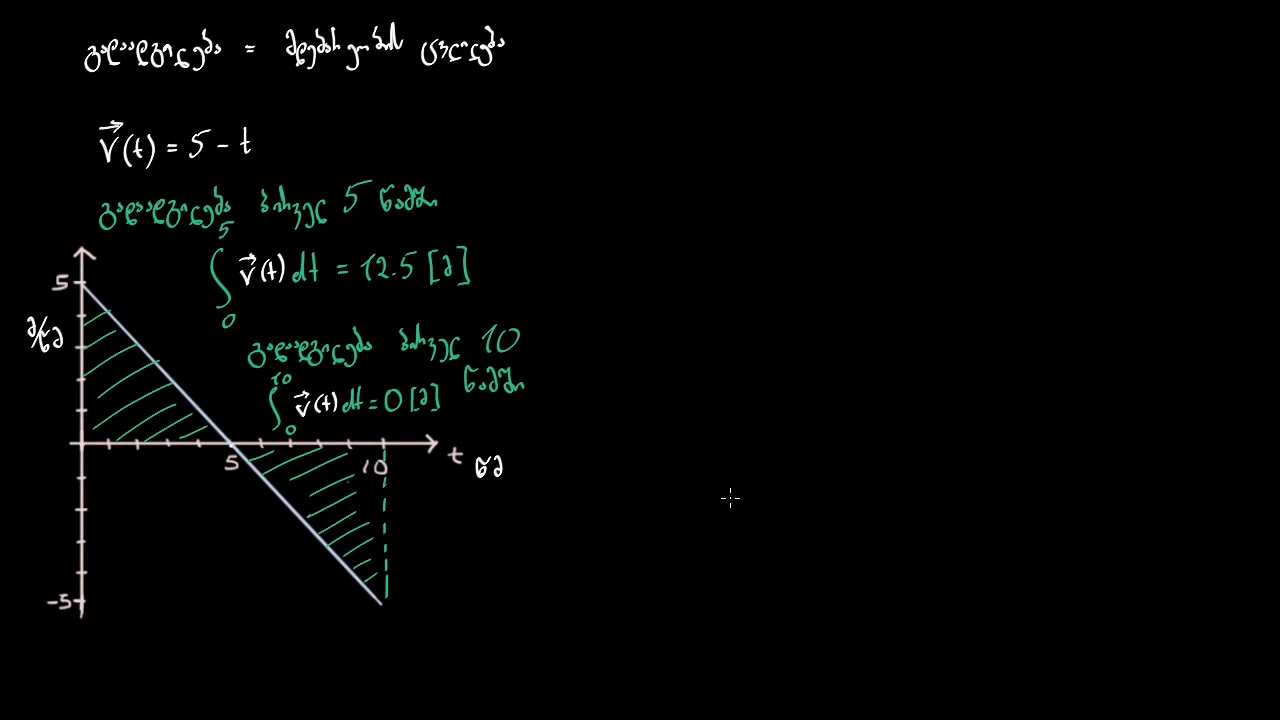 გადაადგილება = მდებარეობის ცვლილება
v⃗(t) = 5 - t
გადაადგილება პირველ 5 წამში
∫₀⁵ v⃗(t) dt = 12.5 [მ]
გადაადგილება პირველ 10 წამში
∫₀¹⁰ v⃗(t) dt = 0 [მ]
5
მ/წმ
5
10
t წმ
-5